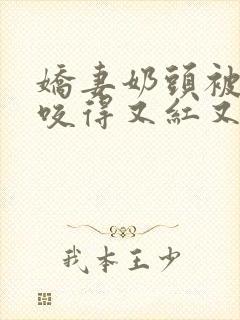 嬌妻奶頭被
咬得又紅又
我本王少